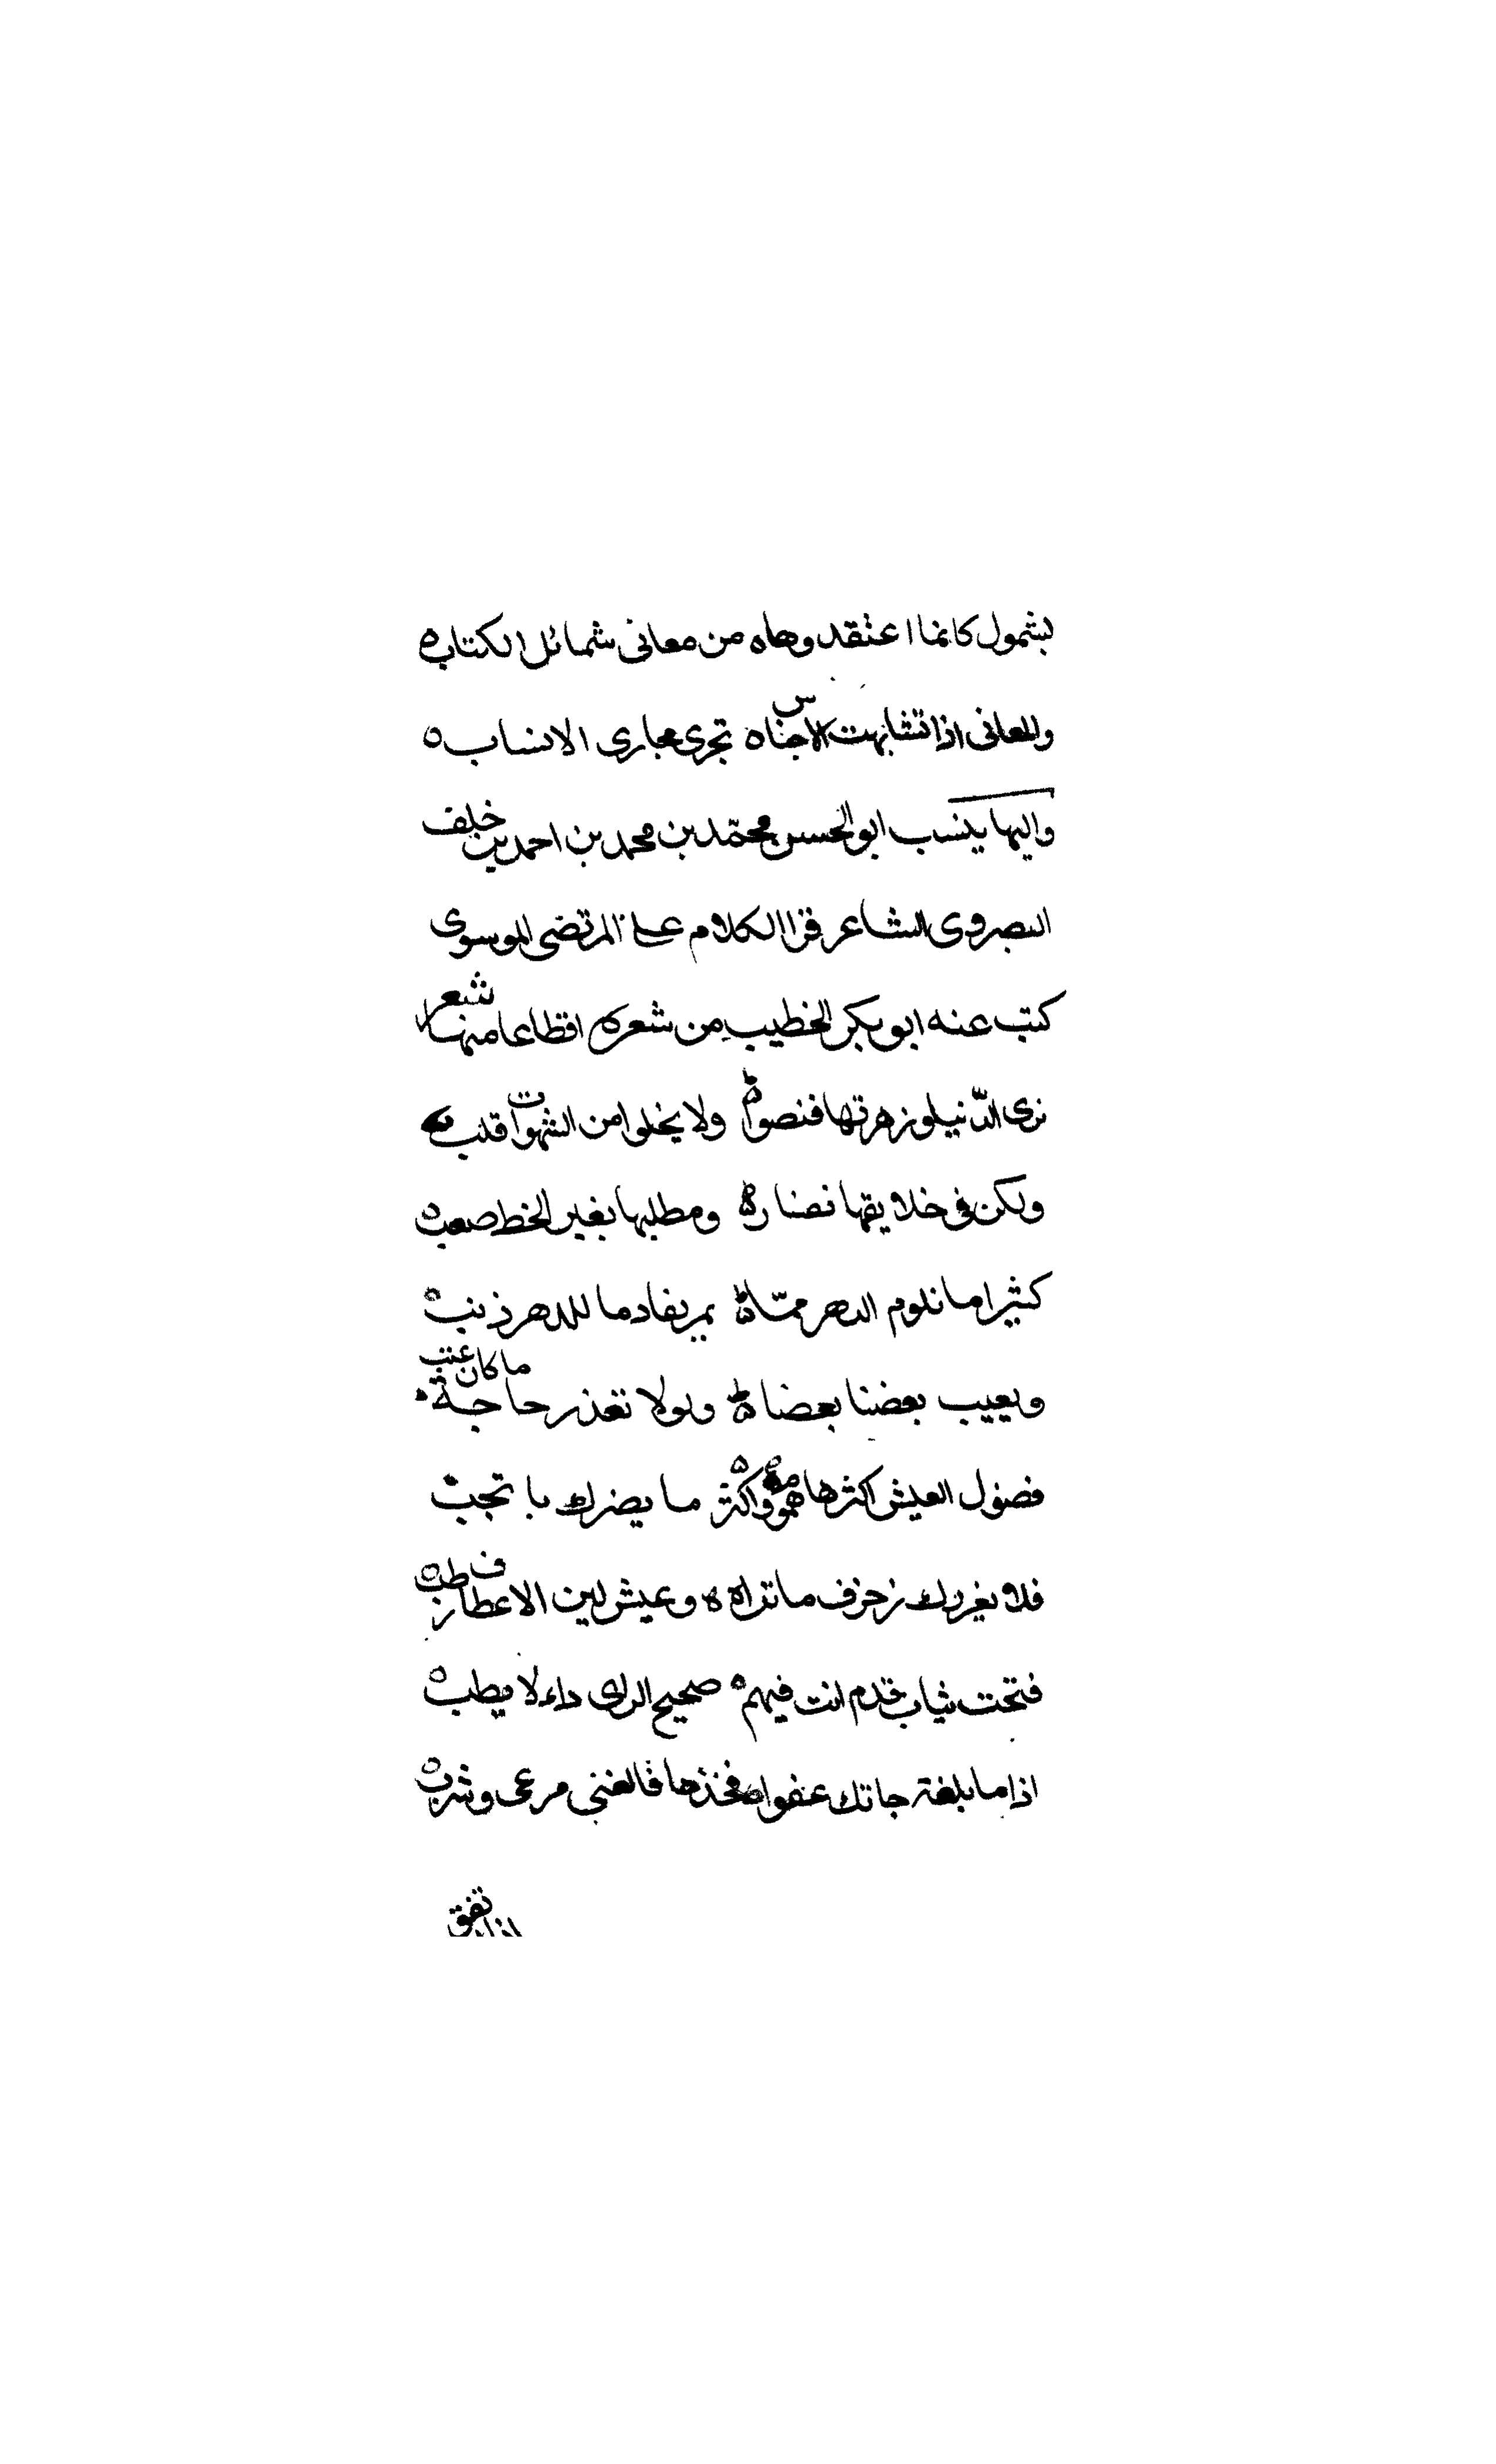 بشمول كانما اعتقدوها ه من معانى شمائل الكتاب ه
والمعانى اذا تشابهت الاجناس ه تجرى مجارى الانساب ه
واليها ينسب ابو الحسن محمد بن محمد بن احمد بن خلف
البصروى الشاعر قرا الكلام على المرتضى الموسوى
كتب عنه ابو بكر الخطيب من شعره اقطاعا منها شعر
نرى الدنيا وزهرتها فنصوا ولا يخلوا من الشهوات قلب
ولكن فى خلايقها نضاره ومطلبها بغير الخط صعب ه
كثيرا ما نلوم الدهر مما ه يمر بنا وما للدهر ذنب ه
ويعيب بعضنا بعضا ه ولولا تعذر حاجة ما كان عتب
فضول العيش اكثرها هموم ه واكثر ما يضرك ما تحب
فلا يغررك زخرف ما تراه ه وعيش لين الاعطاف رطب ه
فتحت ثياب قدم انت فيهم ه صحيح الراى داء لا يطب ه
اذا ما بلغة جاتك عفوا ه فخذها فالغنى مرعى وشرب ه
اذا اتفق